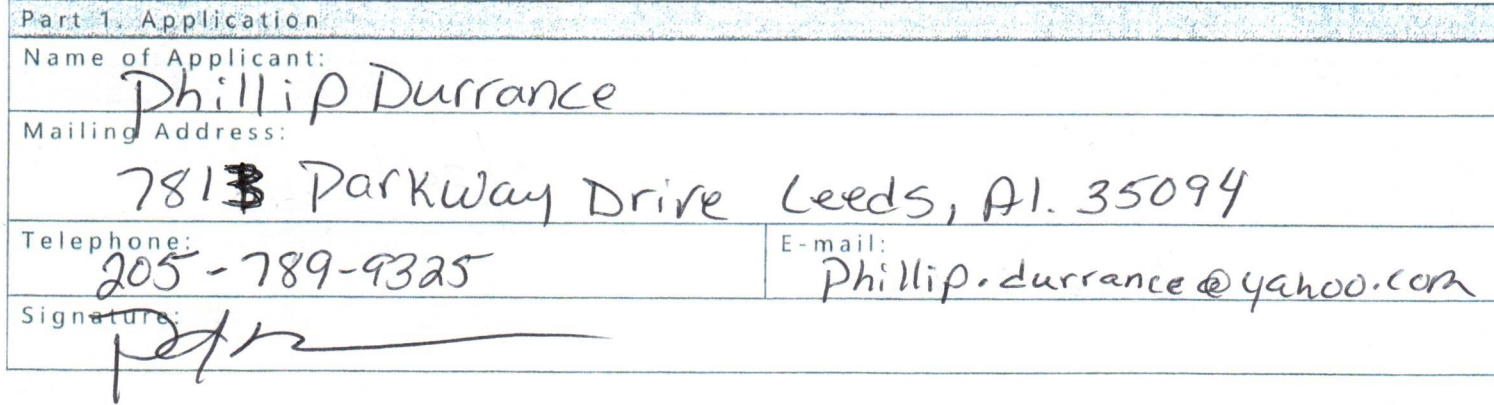 Part 1. Application
Name of Applicant:
Phillip Durrance
Mailing Address:
781 Parkway Drive Leeds, Al. 35094
Telephone: E-mail:
205-789-9325 Phillip.durrance@yahoo.com
Signature: